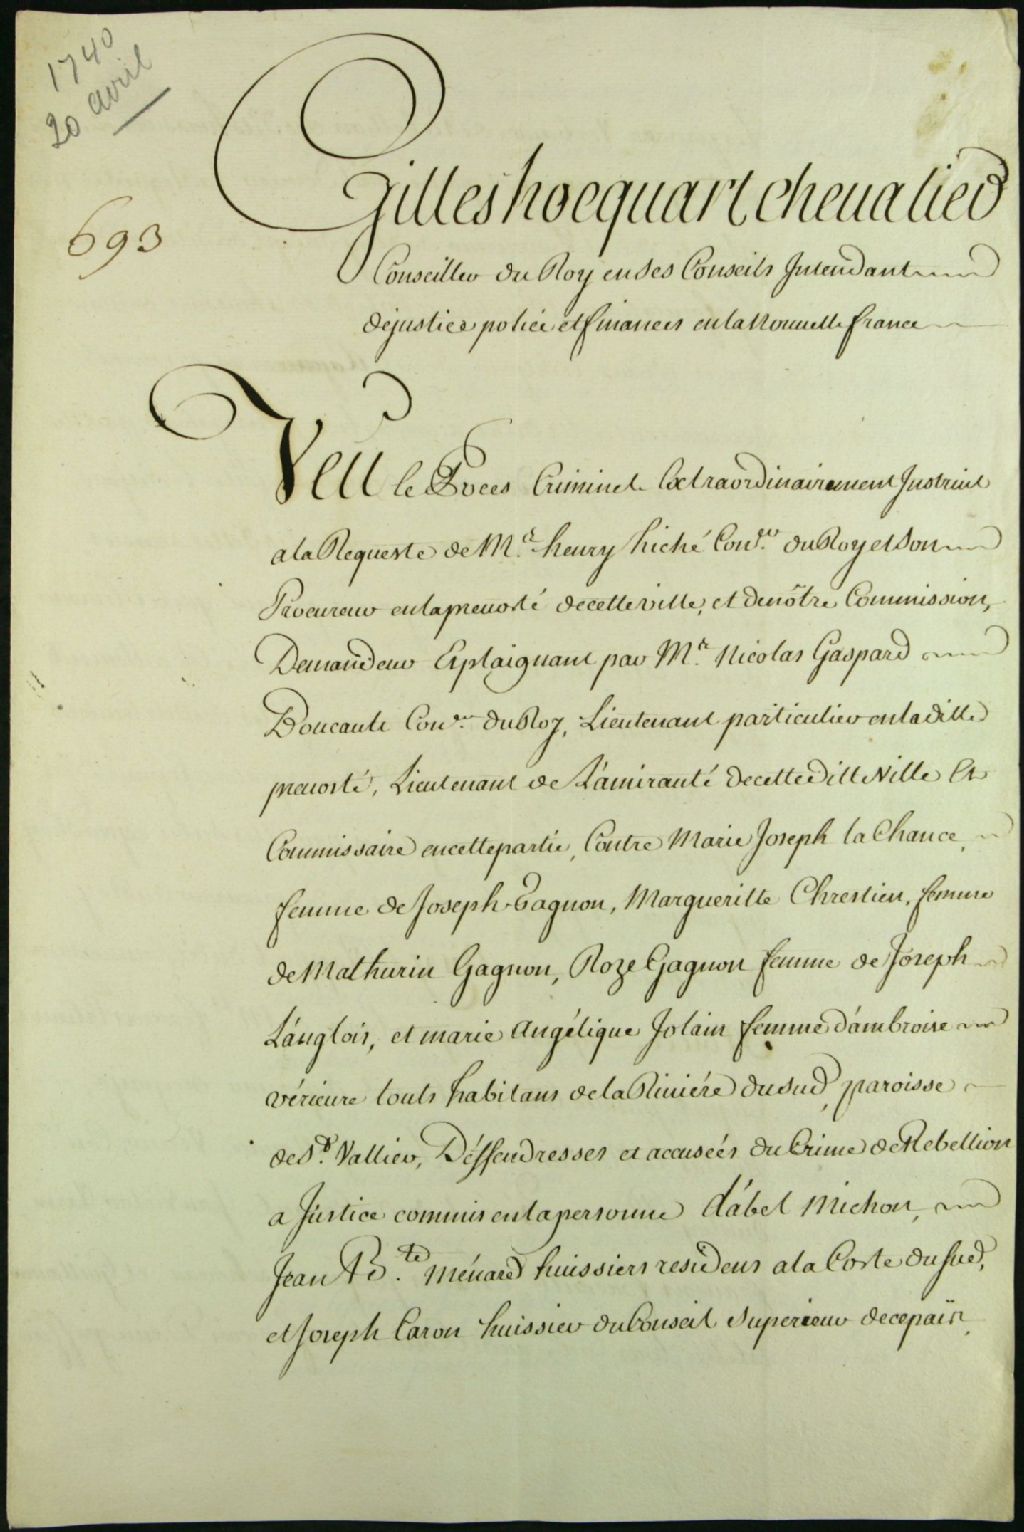 1740
20 avril
693
Gilles hocquart chevalier
Conseiller du Roy en ses Conseils Intendant
dejustice police et finances en la Nouvelle france
Veu le Procès Criminel Extraordinairement Instruit
a la Requeste de M.e henry hiché Con.er du Roy et son
Procureur en la prevosté de cette ville, et de nôtre Commission,
Demandeur Et plaignant par M.e Nicolas Gaspard
Boucault Con.er du Roy, Lieutenant particulier en la ditte
prevosté, Lieutenant de L'amirauté de cette ditte Ville Et
Commissaire en cette partie, Contre Marie Joseph la Chance,
femme de Joseph Gagnon, Margueritte Chrestien, femme
de Mathurin Gagnon, Roze Gagnon femme de Joseph
Langlois, et marie Angélique Jolain femme d'ambroise
vérieure touts habitans de la Riviére du Sud, paroisse
de S.t Vallier, Déffendresses et accuseés du Crime de Rebellion
a Justice commis en la personne d'abel Michon,
Jean B.te Ménard huissiers residens a la Coste du Sud,
et Joseph Caron huissier du Conseil Superieur de ce païs,